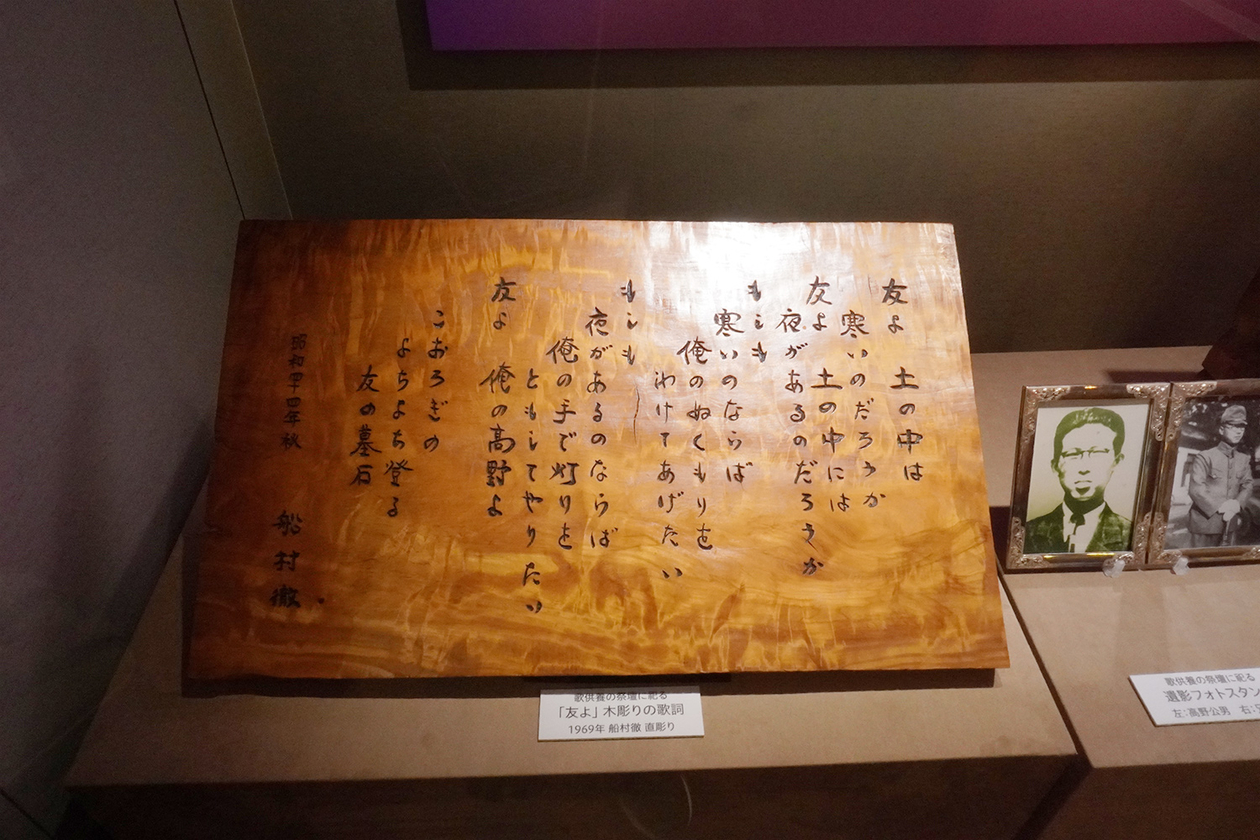 友よ 土の中は
寒いのだろうか
友よ 土の中には
夜があるのだろうか
もしも
寒いのならば
俺のぬくもりを
わけてあげたい
もしも
夜があるのならば
俺の手で灯りを
ともしてやりたい
友よ 俺の高野よ
こおろぎの
よちよち登る
友の墓石
昭和四十四年秋
船村徹
歌供養の祭壇に祀る
「友よ」木彫りの歌詞
1969年 船村徹 直彫り
歌供養の祭壇に祀る
遺影フォトスタン
左:高野公男 右: